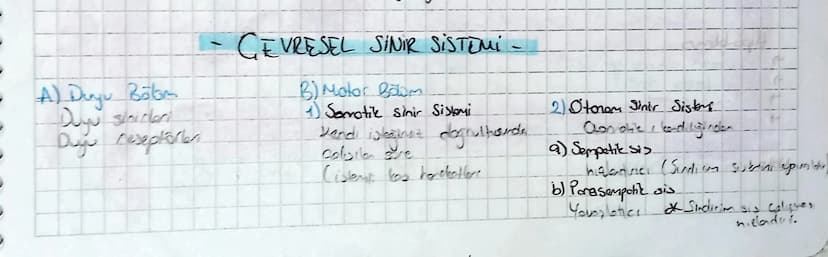 - ÇEVRESEL SİNİR SİSTEMİ -
A) Duyu Bölüm
Duyu sinirleri
Duyu reseptörleri
B) Motor Bölüm
1) Somatik sinir Sistemi
Kendi isteğimiz doğrultusunda
çalışır
(istemli kas hareketleri
2) Otonom Sinir Sistemi
Otomatik, kendiliğinden
a) Sempatik sis
hızlandırıcı (Sindirim sistemi
b) Parasempatik sis
Yavaşlatıcı * Sindirim sis çalışması
hızlandırır.